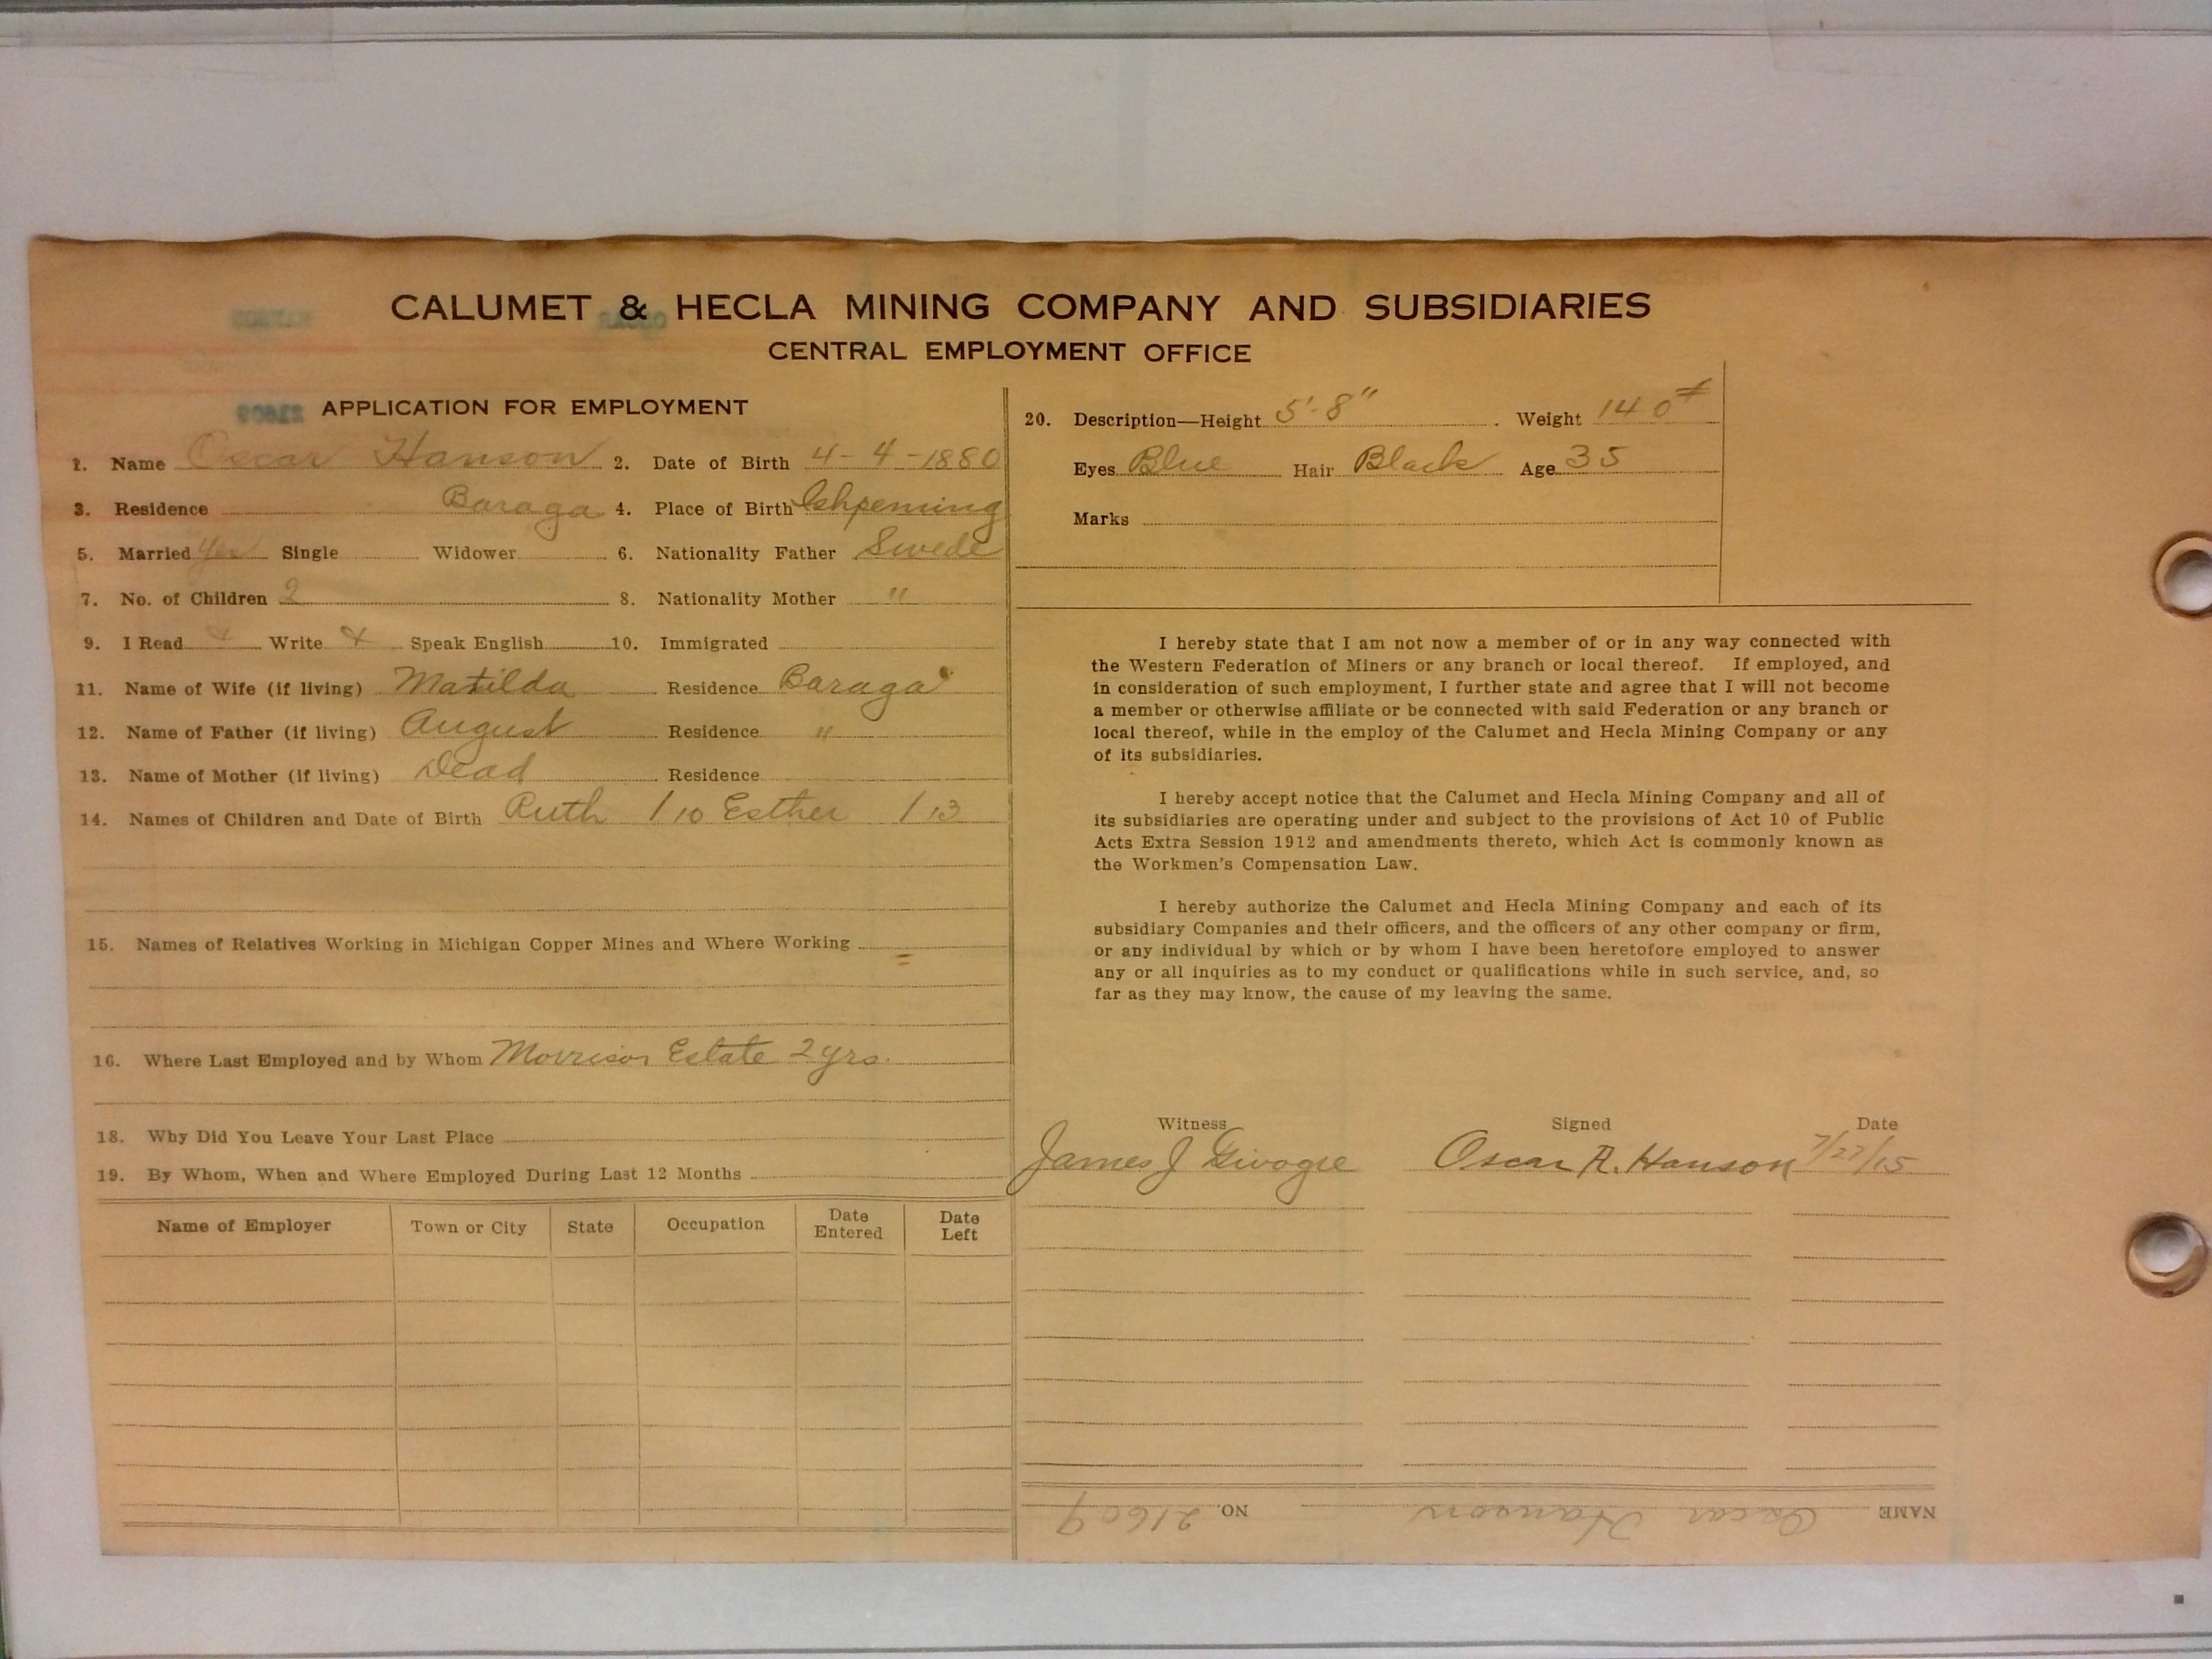 CALUMET & HECLA MINING COMPANY AND SUBSIDIARIES
CENTRAL EMPLOYMENT OFFICE
APPLICATION FOR EMPLOYMENT
1. Name Oscar Hanson 2. Date of Birth 4-4-1880
3. Residence Baraga 4. Place of Birth Ishpeming
5. Married Yes Single Widower 6. Nationality Father Swede
7. No. of Children 2 8. Nationality Mother "
9. I Read Write Speak English 10. Immigrated
11. Name of Wife (if living) Matilda Residence Baraga
12. Name of Father (if living) August Residence "
13. Name of Mother (if living) Dead Residence
14. Names of Children and Date of Birth Ruth /10 Esther /13
15. Names of Relatives Working in Michigan Copper Mines and Where Working
16. Where Last Employed and by Whom Morrison Estate 2 yrs.
18. Why Did You Leave Your Last Place
19. By Whom, When and Where Employed During Last 12 Months
Name of Employer Town or City State Occupation Date Entered Date Left
20. Description—Height 5'-8" Weight 140#
Eyes Blue Hair Black Age 35
Marks
I hereby state that I am not now a member of or in any way connected with
the Western Federation of Miners or any branch or local thereof. If employed, and
in consideration of such employment, I further state and agree that I will not become
a member or otherwise affiliate or be connected with said Federation or any branch or
local thereof, while in the employ of the Calumet and Hecla Mining Company or any
of its subsidiaries.
I hereby accept notice that the Calumet and Hecla Mining Company and all of
its subsidiaries are operating under and subject to the provisions of Act 10 of Public
Acts Extra Session 1912 and amendments thereto, which Act is commonly known as
the Workmen's Compensation Law.
I hereby authorize the Calumet and Hecla Mining Company and each of its
subsidiary Companies and their officers, and the officers of any other company or firm,
or any individual by which or by whom I have been heretofore employed to answer
any or all inquiries as to my conduct or qualifications while in such service, and, so
far as they may know, the cause of my leaving the same.
Witness Signed Date
James J Oscar A. Hanson 7/27/15
NAME Oscar Hanson NO. 21609